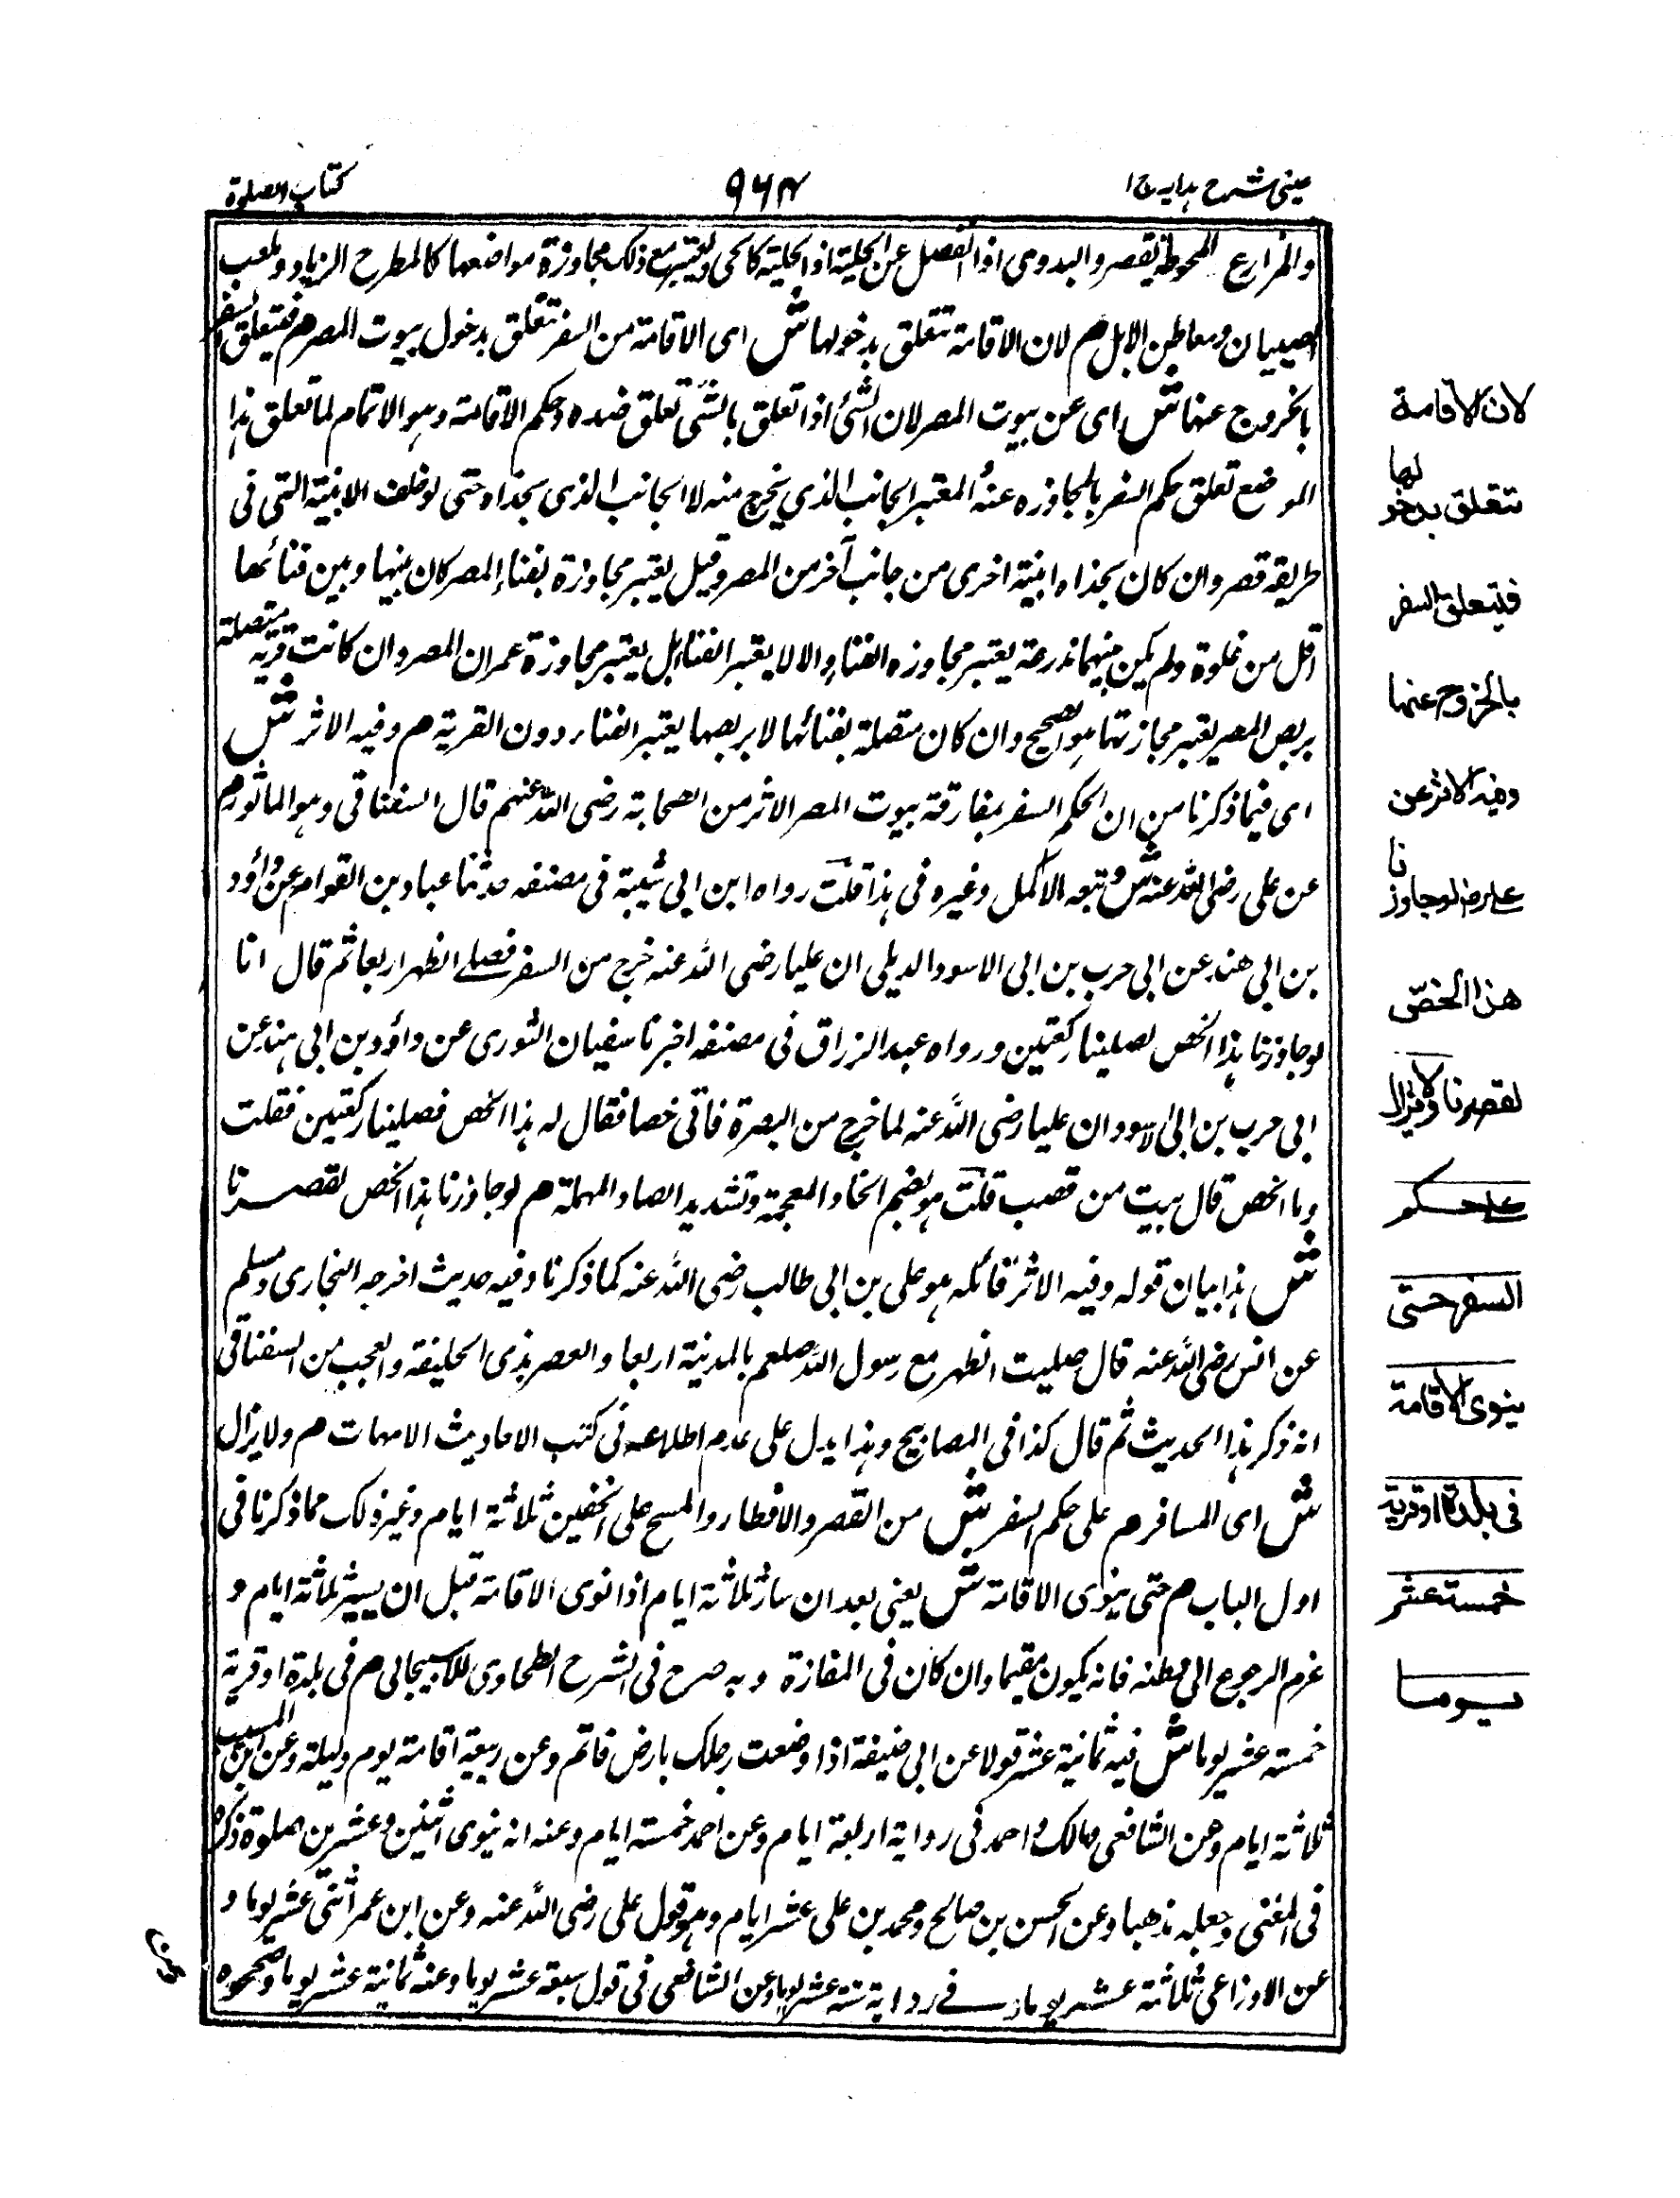 عینی شرح ہدایہ ج ١
٩٦٣
کتاب الصلوة
والمزارع المحوطة یقصر والبدوی اذا انفصل عن الحلیة اذ الحلیة کالحی ویعتبر مع ذلک مجاوزة مواضعها کالمطرح الزیاد وملعب
الصبیان ومعاطن الابل م لان الاقامة تتعلق بدخولها ش ای الاقامة من السفر تتعلق بدخول بیوت المصر م فیتعلق السفر
بالخروج عنها ش ای عن بیوت المصر لان الشئ اذا تعلق بالشئ تعلق ضده وحکم الاقامة وهو الاتمام لما تعلق هذا
الموضع تعلق حکم السفر بالمجاوزه عنه المعتبر الجانب الذی یخرج منه لا الجانب الذی بحذاه حتی لو خلف الابنیة التی فی
طریقه قصر وان کان بحذاه ابنیة اخری من جانب آخر من المصر وقیل یعتبر مجاوزة بفناء المصر کان بینها وبین فنائها
اقل من غلوة ولم یکن بینهما مزرعة یعتبر مجاوزه الفناء والا لا یعتبر الفناء بل یعتبر مجاوزة عمران المصر وان کانت قریة متصلة
بربض المصر یعتبر مجاوزتها هو الصحیح وان کان متصلة بفنائها لا بربضها یعتبر الفناء دون القریة م وفیه الاثر ش
ای فیما ذکرنا من ان الحکم السفر بمفارقة بیوت المصر الاثر من الصحابة رضی الله عنهم قال السغناقی وهو الماثور م
عن علی رضی الله عنه ش وتبعه الاکمل وغیره فی هذا قلت رواه ابن ابی شیبة فی مصنفه حدثنا عباد بن العوام عن داؤد
بن ابی هند عن ابی حرب بن ابی الاسود الدیلی ان علیا رضی الله عنه خرج من السفر فصلے الظهر اربعا ثم قال انا
لو جاوزنا هذا الخص لصلینا رکعتین ورواه عبد الرزاق فی مصنفه اخبرنا سفیان الثوری عن داؤد بن ابی هند عن
ابی حرب بن ابی الاسود ان علیا رضی الله عنه لما خرج من البصرة فاتی خصا فقال له هذا الخص فصلینا رکعتین فقلت
وما الخص قال بیت من قصب قلت هو بضم الخاء المعجمة وتشدید الصاد المهملة م لو جاوزنا هذا الخص لقصرنا
ش هذا بیان قوله وفیه الاثر قائله هو علی بن ابی طالب رضی الله عنه کما ذکرنا وفیه حدیث اخرجه البخاری ومسلم
عن انس رضی الله عنه قال صلیت الظهر مع رسول الله صلعم بالمدینة اربعا والعصر بذی الحلیفة والعجب من السغناقی
انه ذکر هذا الحدیث ثم قال کذا فی المصابیح وهذا یدل علی عدم اطلاعه فی کتب الاحادیث الامهات م ولا یزال
ش ای المسافر م علی حکم السفر ش من القصر والافطار والمسح علی الخفین ثلاثة ایام وغیر ذلک مما ذکرنا فی
اول الباب م حتی ینوی الاقامة ش یعنی بعد ان سار ثلاثة ایام اذا نوی الاقامة قبل ان یسیر ثلاثة ایام و
عزم الرجوع الی وطنه فانه یکون مقیما وان کان فی المفازة وبه صرح فی الشرح الطحاوی للاسبیجابی م فی بلدة او قریة
خمسة عشر یوما ش فیه ثمانیة عشر قولا عن ابی حنیفة اذا وضعت رجلک بارض فاتم وعن ربیعة اقامة یوم ولیلة وعن ابن المسیب
ثلاثة ایام وعن الشافعی ومالک واحمد فی روایة اربعة ایام وعن احمد خمسة ایام وعنه انه ینوی اثنین وعشرین صلوة ذکره
فی المغنی وجعله مذهبا وعن الحسن بن صالح ومحمد بن علی عشر ایام وهو قول علی رضی الله عنه وعن ابن عمر اثنی عشر یوما و
عن الاوزاعی ثلاثة عشر یوما وفے روایة ستة عشر یوما وعن الشافعی فی قول سبعة عشر یوما وعنه ثمانیة عشر یوما وصححوه
لان الاقامة
تتعلق بدخولها
فیتعلق السفر
بالخروج عنها
وفیه الاثر عن
علی رض لو جاوزنا
هذا الخص
لقصرنا ولا یزال
علے حکم
السفر حتی
ینوی الاقامة
فی بلدة او قریة
خمسة عشر
یوما